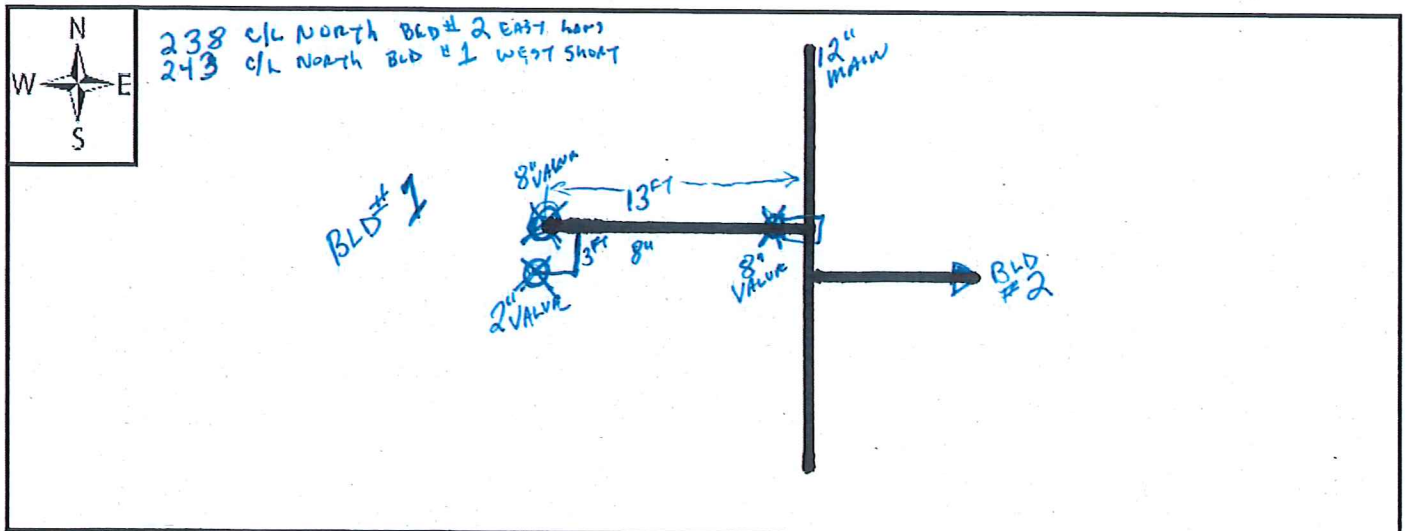 N
W E
S
238 C/L NORTH BLD # 2 EAST LONG
243 C/L NORTH BLD # 1 WEST SHORT
12"
MAIN
8" VALVE
13 FT
BLD # 1
3 FT
8"
8"
VALVE
2" VALVE
BLD
# 2